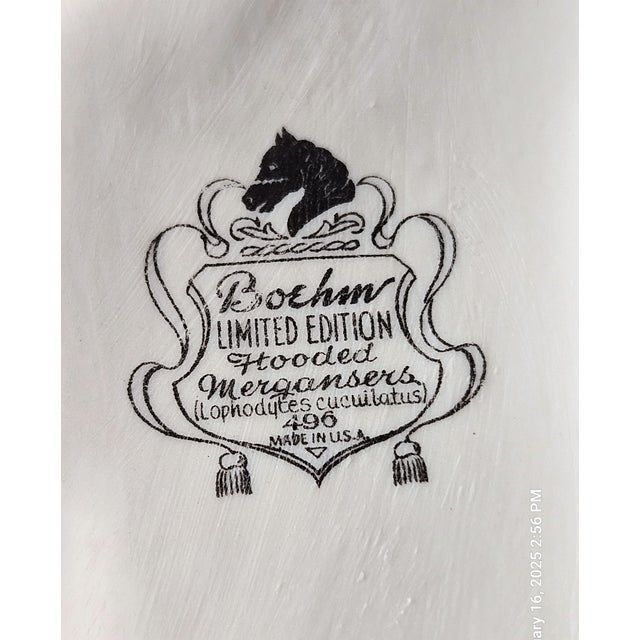 Boehm
LIMITED EDITION
Hooded
Mergansers
(Lophodytes cucuilatus)
496
MADE IN U.S.A.
ary 16, 2025 2:56 PM